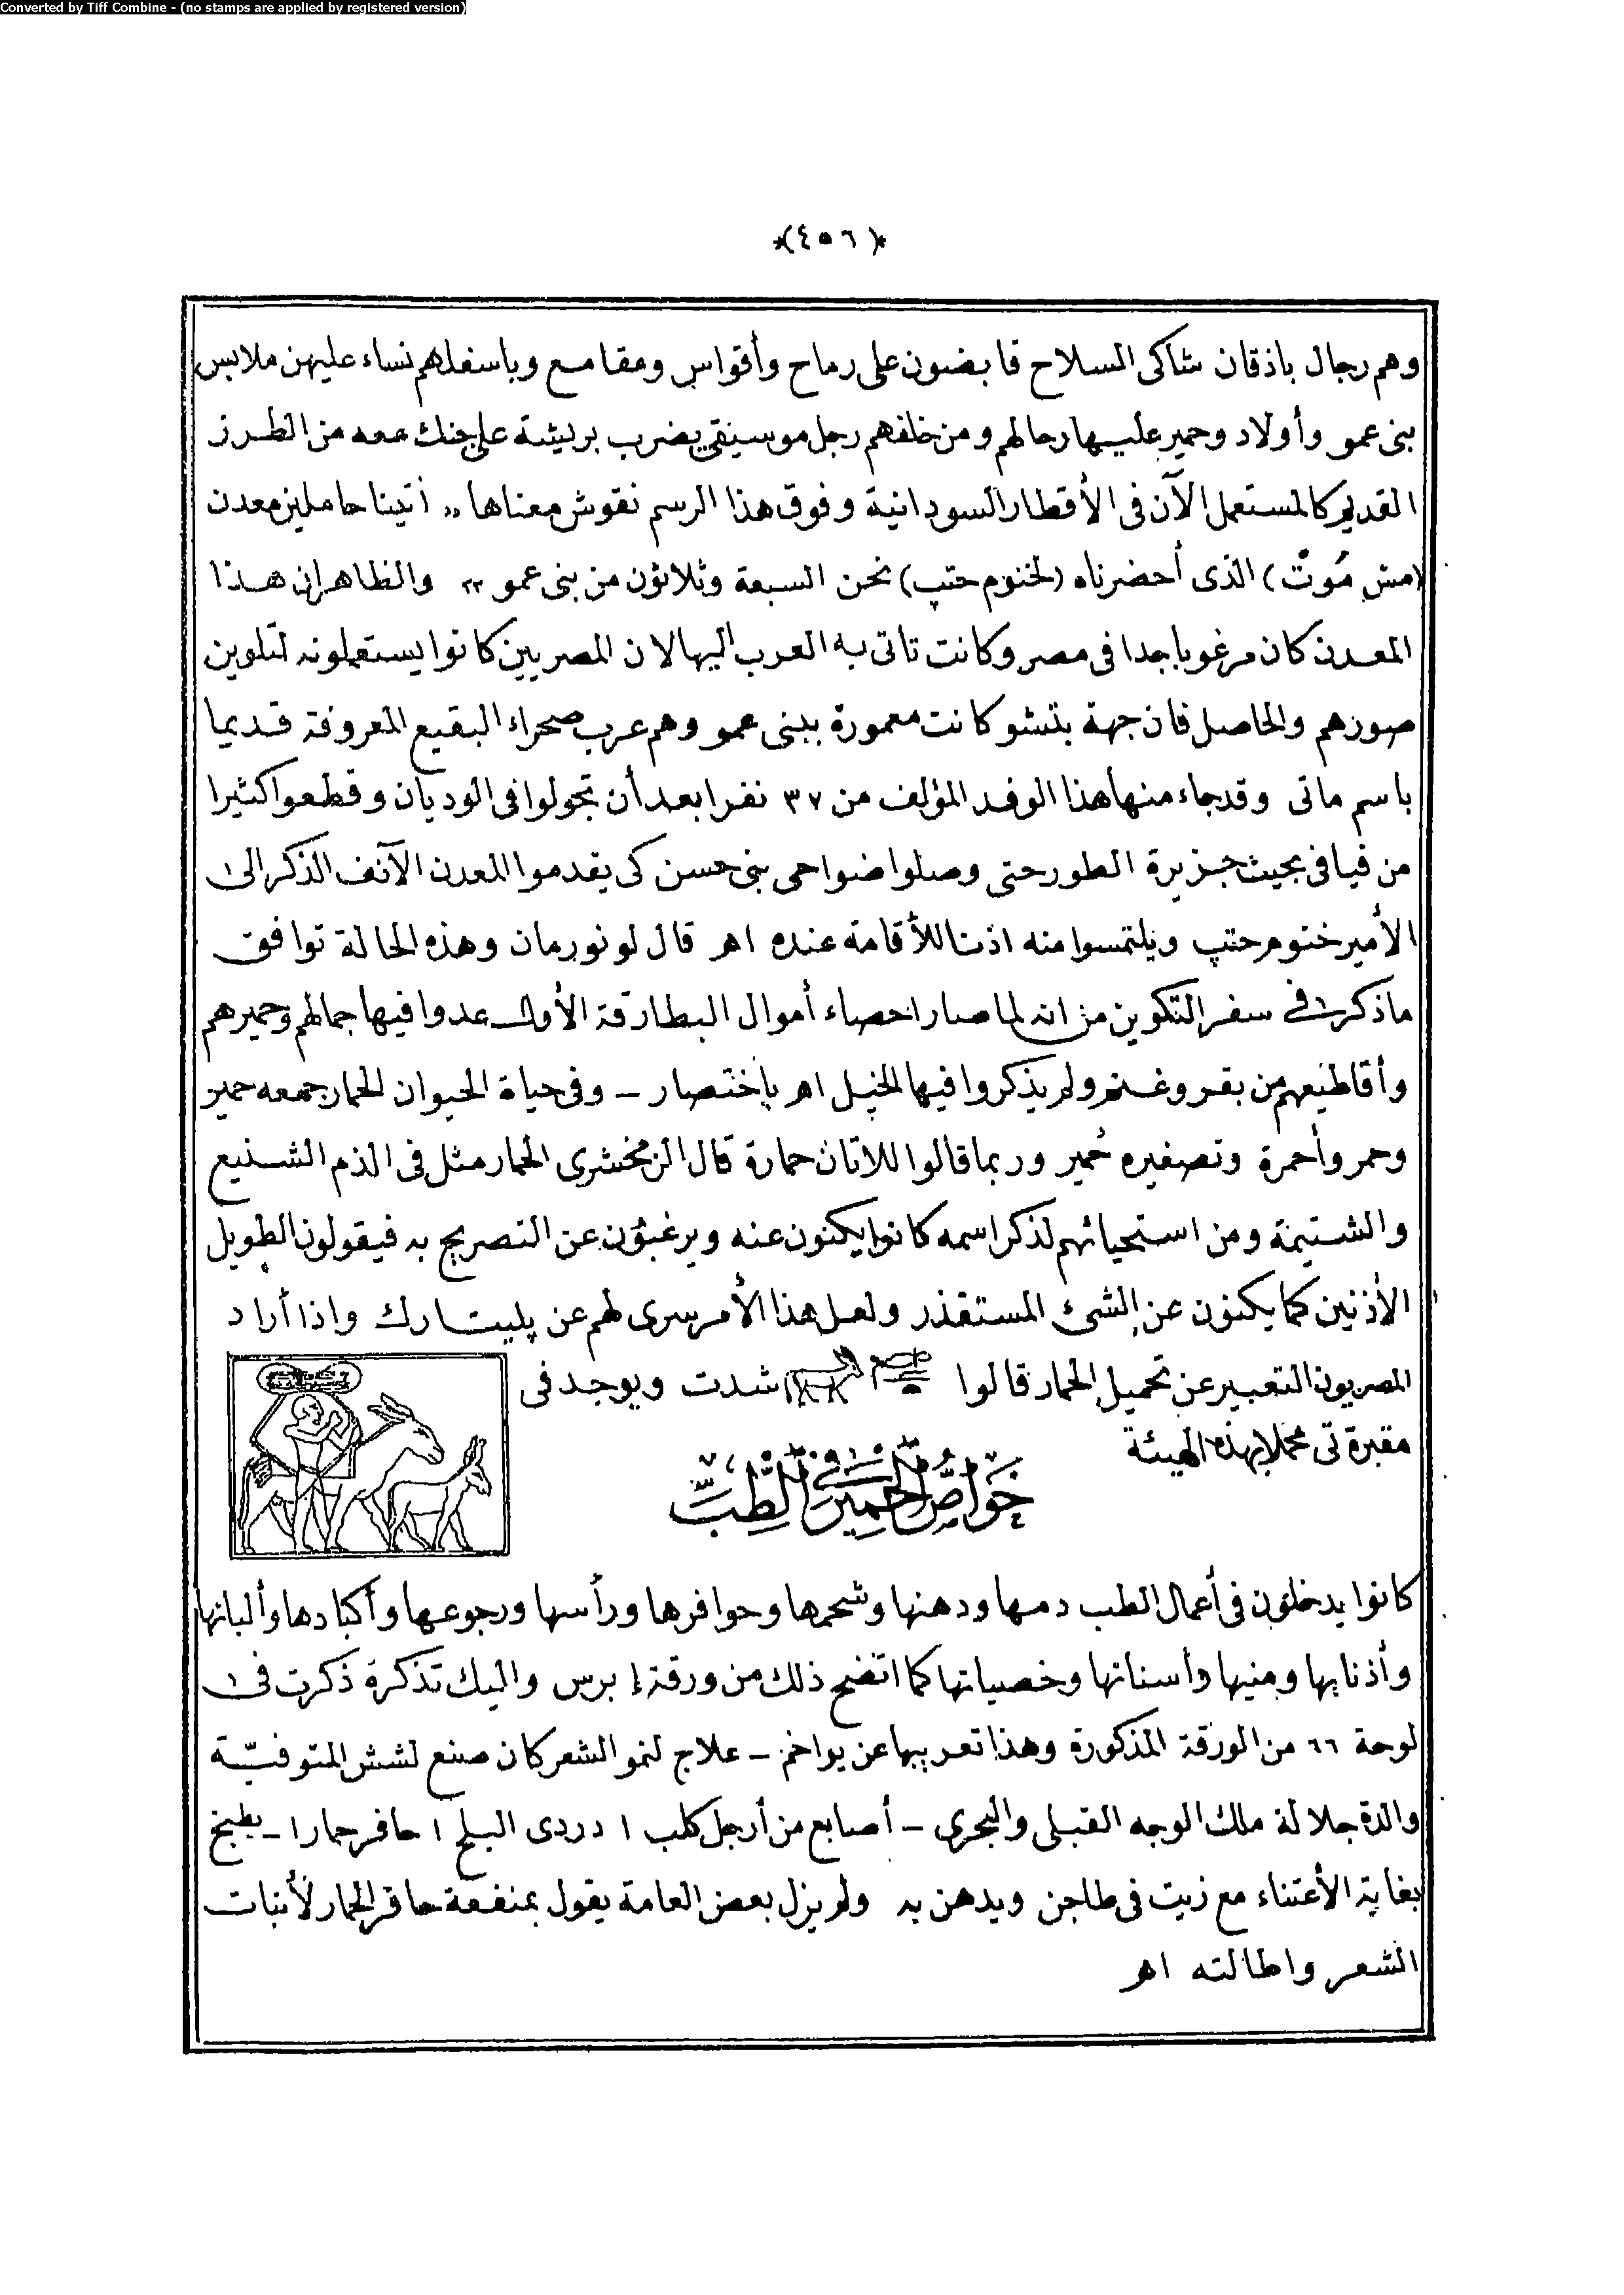 Converted by Tiff Combine - (no stamps are applied by registered version)
*(٤٥٦)*
وهم رجال باذقان شاكى السلاح قابضون على رماح وأقواس ومقامع وباسفلهم نساء عليهن ملابس
بنى عمو وأولاد وحمير عليها رحالهم ومن خلفهم رجل موسيقى يضرب بريشة على جنك معه من الطرز
القديم كالمستعمل الآن فى الأقطار السودانية وفوق هذا الرسم نقوش معناها ,, أتينا حاملين معدن
(مش مُوتْ) الذى أحضرناه (لخنوم حتب) نحن السبعة وثلاثون من بنى عمو ,, والظاهر ان هذا
المعدن كان مرغوبا جدا فى مصر وكانت تاتى به العرب اليها لان المصريين كانوا يستعملونه لتلوين
صورهم والحاصل فان جهة بتشو كانت معمورة ببنى عمو وهم عرب صحراء البقيع المعروفة قديما
باسم ماتى وقد جاء منها هذا الوفد المؤلف من ٣٧ نفرا بعد أن تجولوا فى الوديان وقطعوا كثيرا
من فيافى بحيث جزيرة الطور حتى وصلوا ضواحى بنى حسن كى يقدموا المعدن الآنف الذكر الى
الأمير خنوم حتب ويلتمسوا منه اذنا للأقامة عنده اهـ قال لونورمان وهذه الحالة توافق
ماذكر فى سفر التكوين من انه لما صار احصاء أموال البطارقة الأول عدوا فيها جمالهم وحميرهم
وأقاطيعهم من بقر وغنم ولم يذكروا فيها الخيل اهـ بإختصار ــ وفى حياة الحيوان الحمار جمعه حمير
وحمر وأحمرة وتصغيره حُمير وربما قالوا للاتان حمارة قال الزمخشرى الحمار مثل فى الذم الشنيع
والشتيمة ومن استحيائهم لذكر اسمه كانوا يكنون عنه ويرغبون عن التصريح به فيقولون الطويل
الأذنين كما يكنون عن الشئ المستقذر ولعل هذا الأمر سرى لهم عن پليتارك واذا أراد
المصريون التعبير عن تحميل الحمار قالوا شدت ويوجد فى
مقبرة تى محملا بهذه الهيئة
خَوَاصُّ الحَمِيْرِ فِى الطِّبِّ
كانوا يدخلون فى أعمال الطب دمها ودهنها وشحمها وحوافرها ورأسها ورجوعها وأكبادها وألبانها
وأذنابها ومنيها وأسنانها وخصياتها كما اتضح ذلك من ورقة إبرس واليك تذكرة ذكرت فى
لوحة ٦٦ من الورقة المذكورة وهذا تعريبها عن يواخم ــ علاج لنمو الشعر كان صنع لشش المتوفيّة
والدة جلالة ملك الوجه القبلى والبحرى ــ أصابع من أرجل كلب ١ دردى البلح ١ حافر حمار ١ ــ يطبخ
بغاية الأعتناء مع زيت فى طاجن ويدهن به ولم يزل بعض العامة يقول بمنفعة حافر الحمار لأنبات
الشعر واطالته اهـ